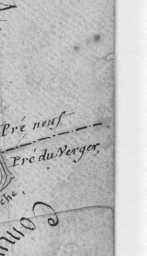 Pré neuf
Pré du Verger
che
Comm